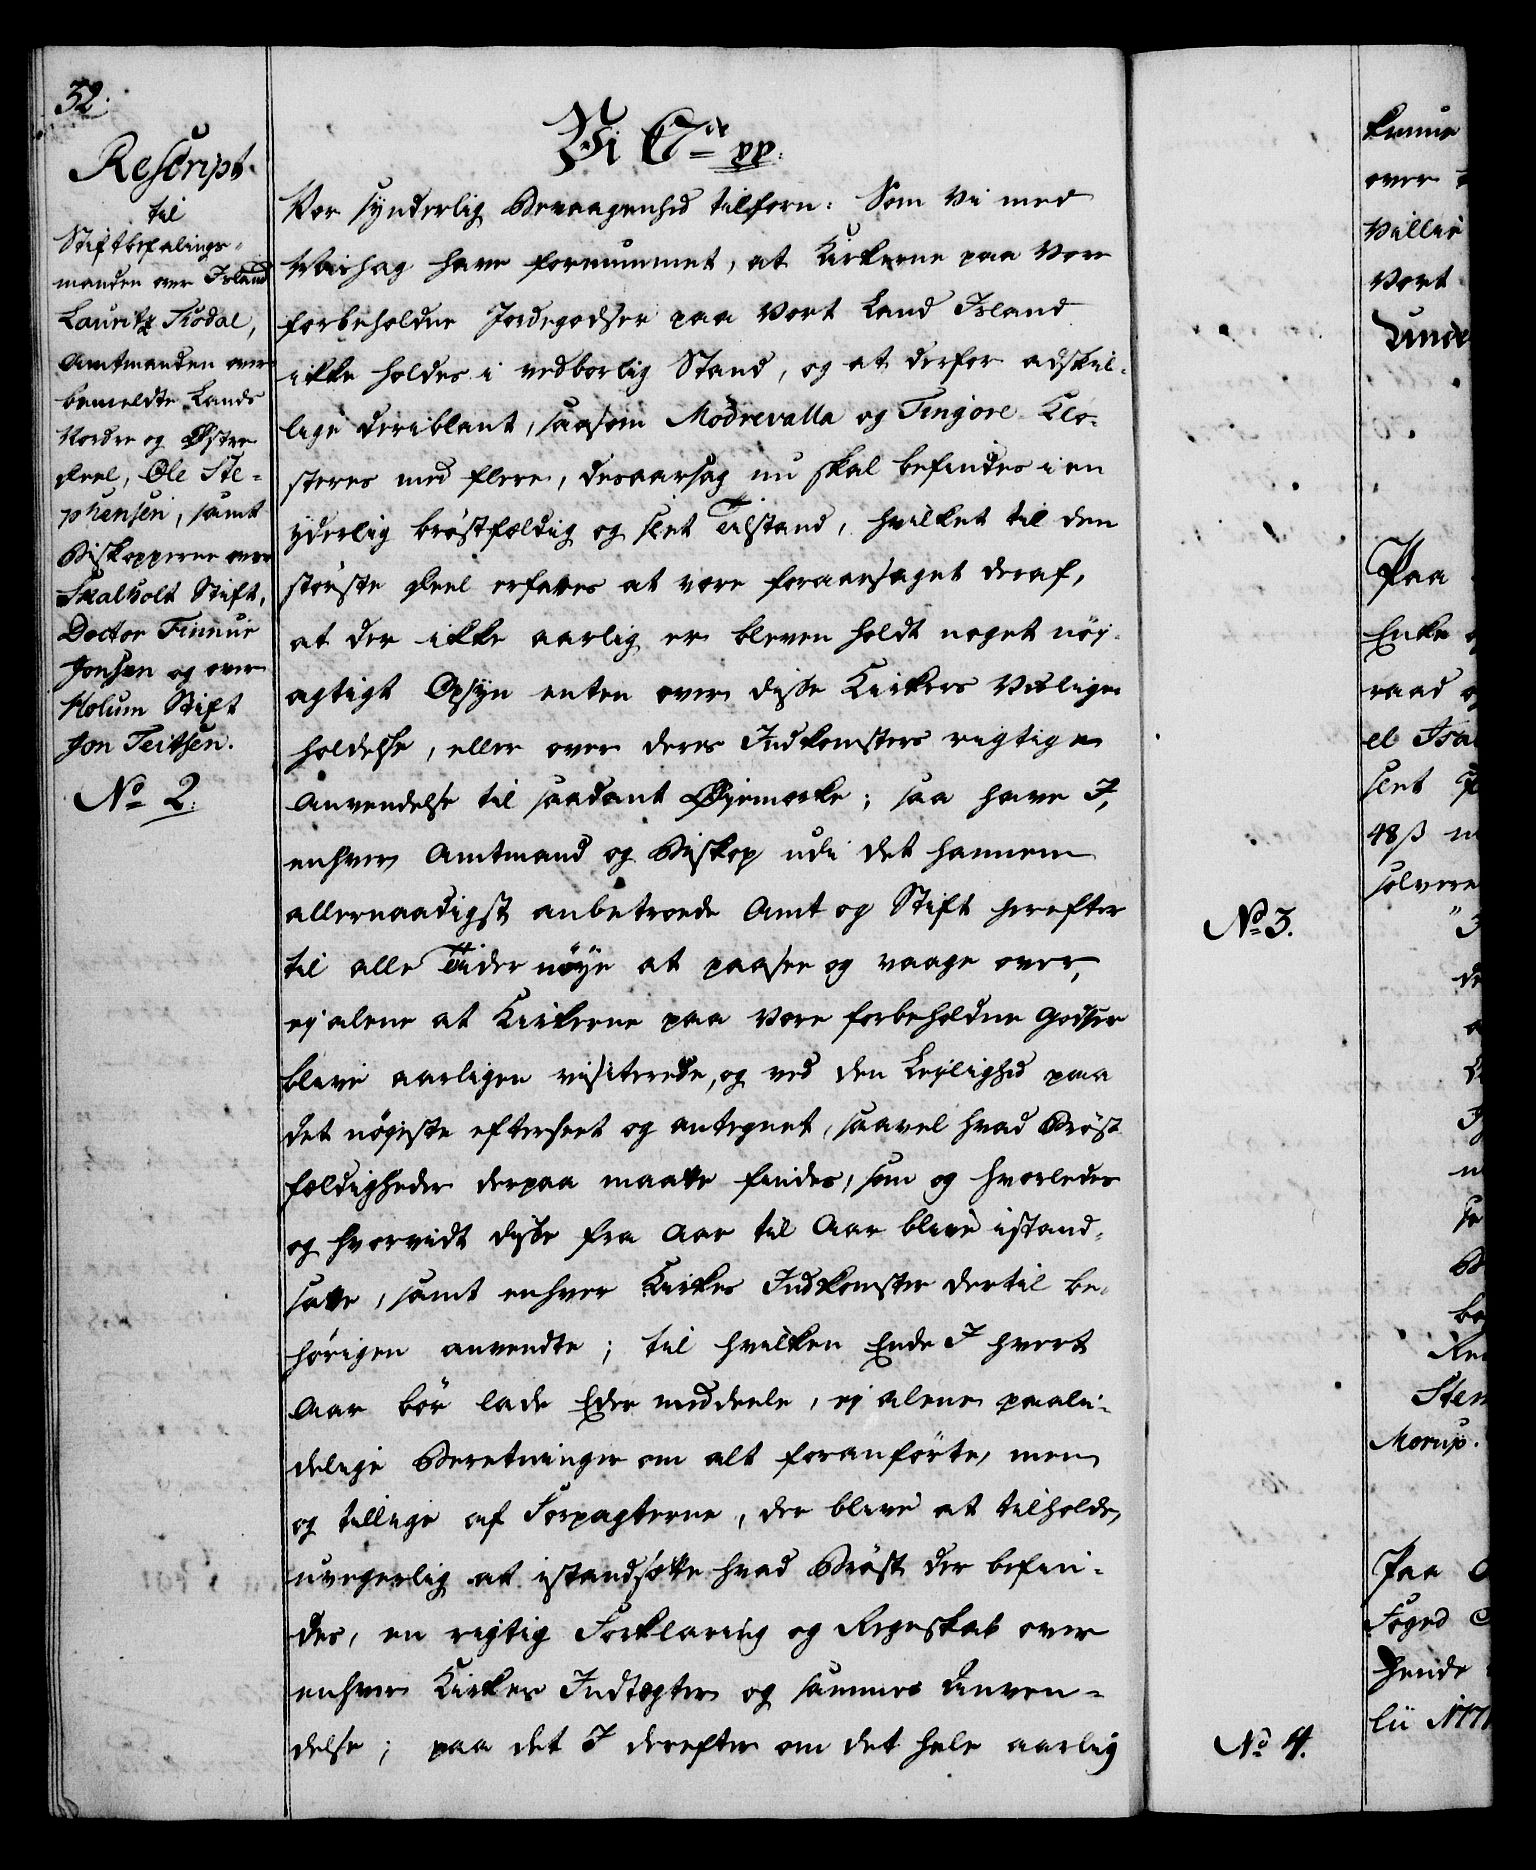 32.
Rescript
til
Stiftbefalings-
manden over Island
Lauritz Tiodal,
Amtmanden over
bemeldte Lands
Nordre og Østre
Deel, Ole Ste-
phensen, samt
Biskopperne over
Skalholt Stift,
Doctor Finnur
Jonsen og over
Holum Stift
Jon Teitsen.
No 2.
Vi C pp:
Vor synderlig Bevaagenhed tilforn: Som Vi med
Mishag have fornummet, at Kirkerne paa Vore
forbeholdne Jordegodser paa Vort Land Island
ikke holdes i vedborlig Stand, og at derfor adskil-
lige deriblant, saasom Modrevalla og Tingöre Klo-
sters med flere, desaarsag nu skal befindes i en
yderlig bröstfeldig og slet Tilstand, hvilket til den
störste Deel erfares at være foraarsaget deraf,
at der ikke aarlig er bleven holdt noget nöy-
agtigt Opsyn enten over disse Kirkers Vedlige-
holdelse, eller over deres Indkomsters rigtige
Anvendelse til saadant Öyemærke; saa have I,
enhver Amtmand og Biskop udi det hannem
allernaadigst anbetroede Amt og Stift herefter
til alle Tiider nöye at paasee og vaage over,
ej alene at Kirkerne paa Vore forbeholdne Godser
blive aarligen visiterede, og ved den Leylighed paa
det nöyeste efterseet og antegnet, saavel hvad Bröst
fældigheder derpaa maatte findes, som og hvorledes
og hvorvidt disse fra Aar til Aar blive istand-
satte, samt enhver Kirkes Indkomster dertil be-
hörigen anvendte; til hvilken Ende I hvert
Aar bör lade Eder meddeele, ej alene paali-
delige Beretninger om alt foranförte, men
og tillige af Forpagterne, der blive at tilholde,
uvegerlig at istandsætte hvad Bröst der befin-
des, en rigtig Forklaring og Regnskab over
enhver Kirkes Indtægter og sammes Anven-
delse; paa det I derefter om det hele aarlig
No 3.
No 4.
over
Villie
Vort
Unde
Paa
Enke
raad
48 ß
Sten
Morup.
Paa
Foged
hende